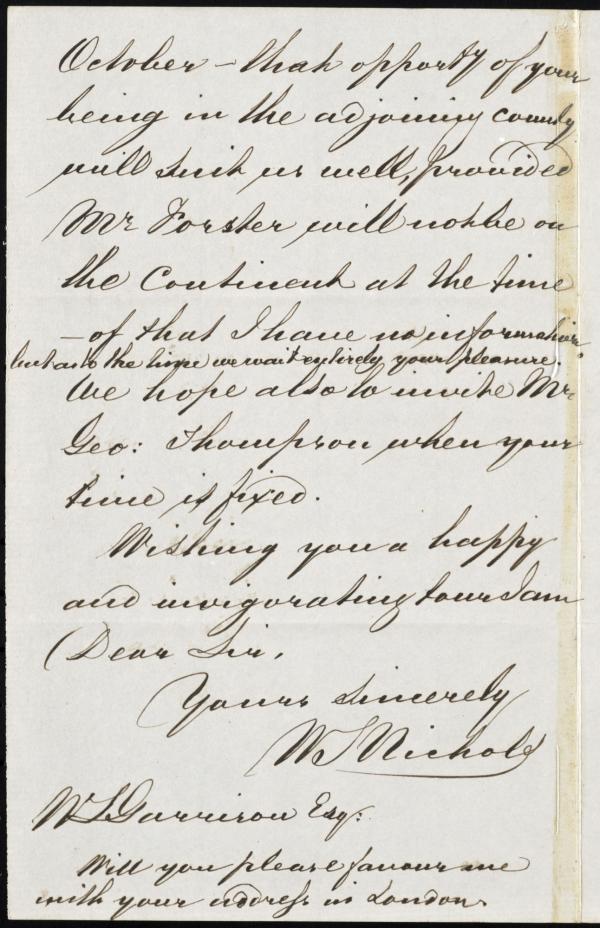 October – that opporty of your
being in the adjoining county
will suit us well, provided
Mr Forster will not be on
the Continent at the time
– of that I have no information
but as to the time we wait entirely your pleasure.
We hope also to invite Mr
Geo: Thompson when your
time is fixed.
Wishing you a happy
and invigorating tour I am
Dear Sir,
Yours sincerely
W S Nichols
W L Garrison Esq:
Will you please favour me
with your address in London